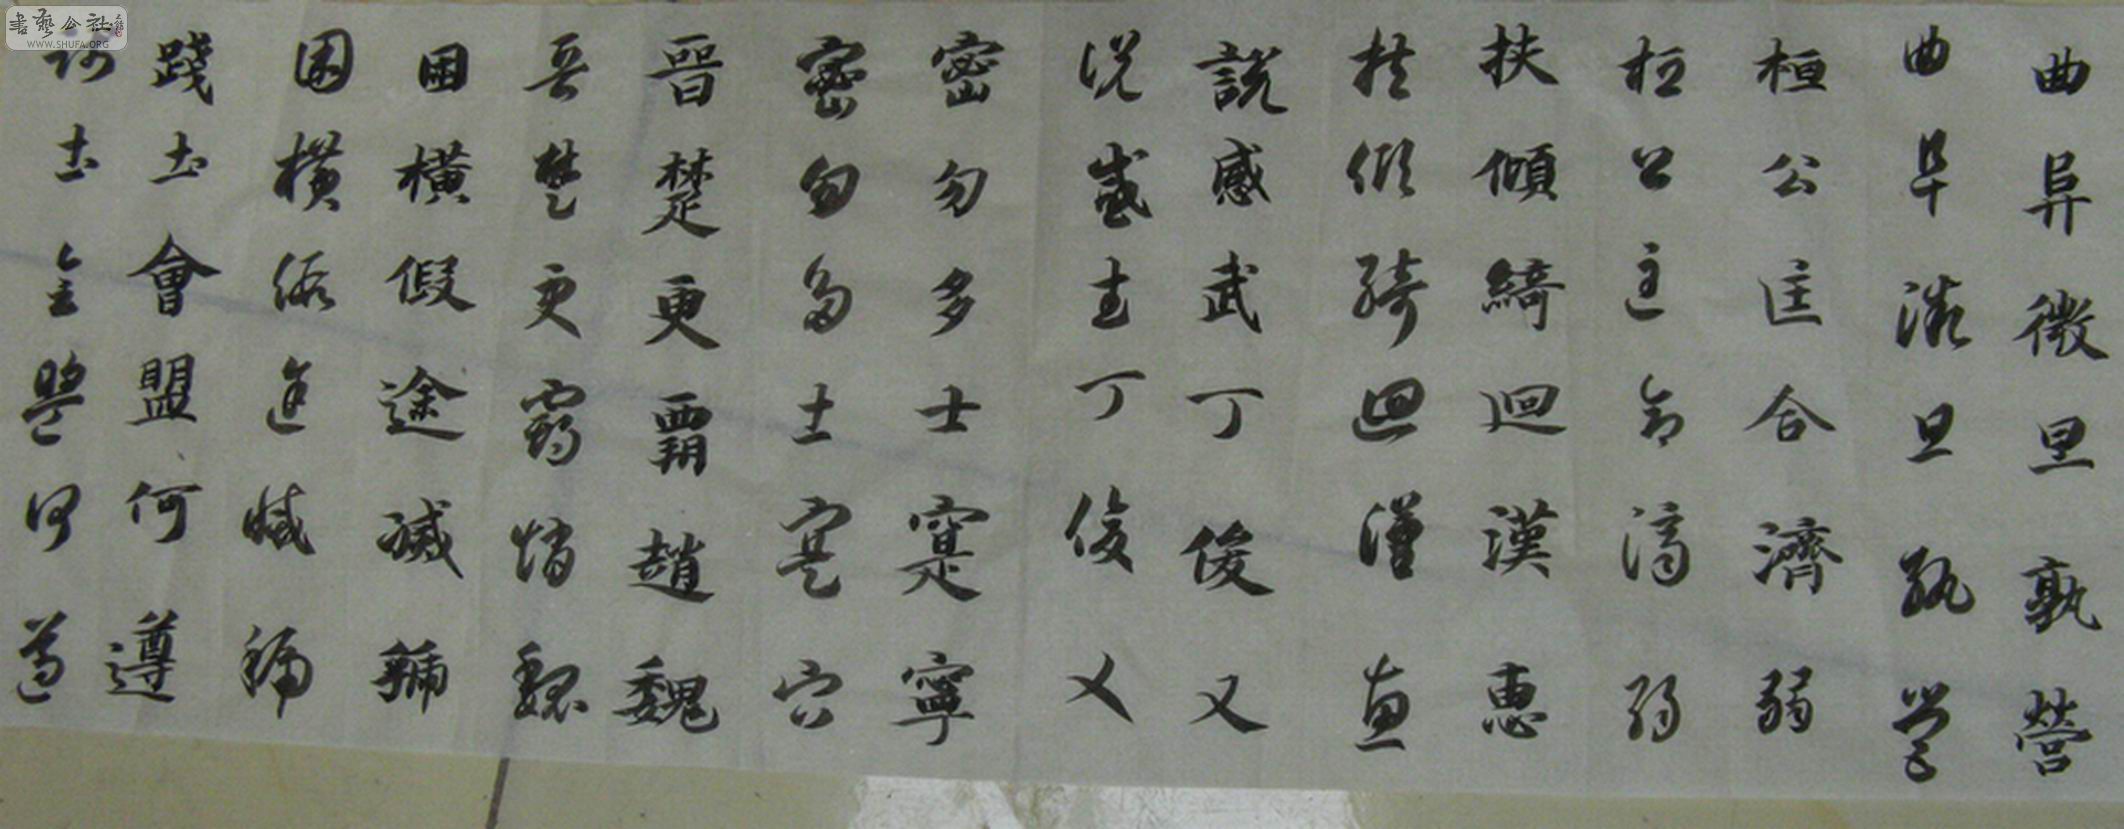 曲阜微旦孰營
曲阜微旦孰營
桓公匡合濟弱
桓公匡合濟弱
扶傾綺迴漢惠
扶傾綺迴漢惠
說感武丁俊乂
說感武丁俊乂
密勿多士寔寧
密勿多士寔寧
晉楚更霸趙魏
晉楚更霸趙魏
困橫假途滅虢
困橫假途滅虢
踐土會盟何遵
踐土會盟何遵
書藝公社
WWW.SHUFA.ORG